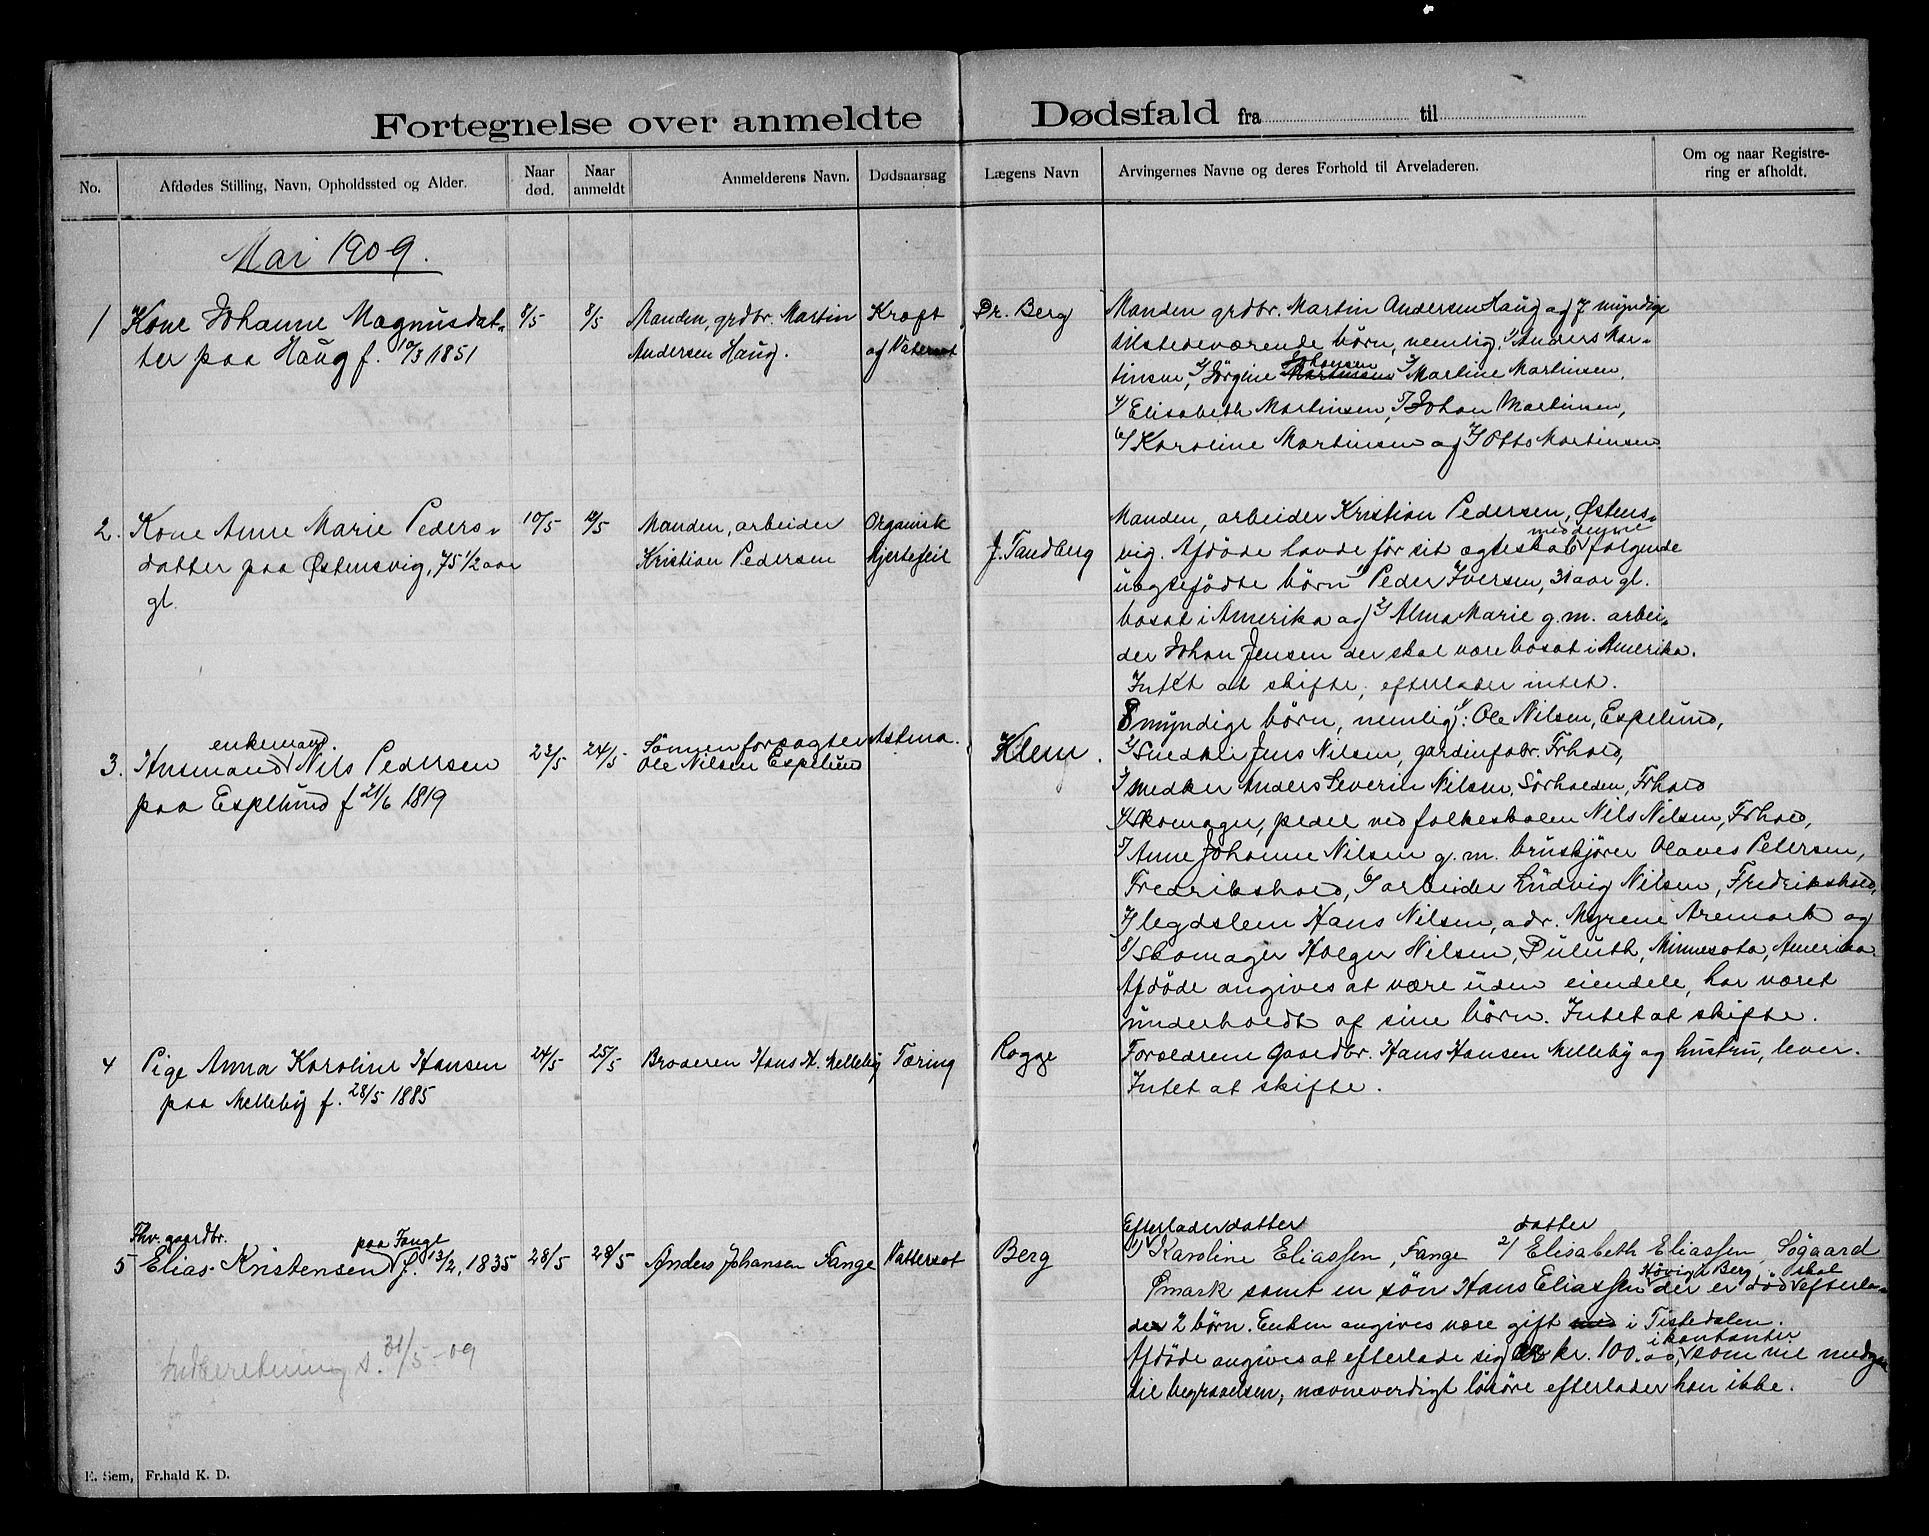 Fortegnelse over anmeldte Dødsfald fra til
No. Afdødes Stilling, Navn, Opholdssted og Alder. Naar død. Naar anmeldt Anmelderens Navn. Dødsaarsag Lægens Navn Arvingernes Navne og deres Forhold til Arveladeren. Om og naar Registrering er afholdt.
Mai 1909.
1 Kone Johanne Magnusdat-
ter paa Haug f. 10/3 1851
8/5
8/5
Manden, grdbr. Martin
Andersen Haug.
Kræft
og Vatersot
Dr. Berg
Manden grdbr. Martin Andersen Haug og 7 myndige
tilstedeværende børn, nemlig, 1/ Anders Mar-
tinsen, 2/ Jørgine Johansen 3/ Martine Martinsen,
4/ Elisabeth Martinsen, 5/ Johan Martinsen,
6/ Karoline Martinsen og 7/ Otto Martinsen.
2. Kone Anne Marie Peders-
datter paa Østensvig, 75 1/2 aar
gl.
10/5
12/5
Manden, arbeider
Kristian Pedersen
Organisk
hjertefeil
J. Tandberg
Manden, arbeider Kristian Pedersen, Østens-
vig. Afdøde havde før sit ægteskab med denne følgende
uægtefødte børn 1/ Peder Iversen, 31 aar gl.
bosat i Amerika og 2/ Alma Marie g.m. arbei-
der Johan Jensen der skal være bosat i Amerika.
Intet at skifte, efterlader intet.
3. Husmand enkemand. Nils Pedersen
paa Espelund f 21/6 1819
23/5
24/5
Sønnen forpagter
Ole Nilsen Espelund
Astma.
Klem.
8 myndige børn, nemlig 1/: Ole Nilsen, Espelund,
2/ Snedker Jens Nilsen, gardinfabr. Frhald,
3/ snedker Anders Severin Nilsen, Sørhalden, Frhald
4/ Skomager, pedel ved folkeskolen Nils Nilsen, Frhald,
5/ Anne Johanne Nilsen g.m. bruskjører Olaves Petersen,
Fredrikshald, 6/ arbeider Ludvig Nilsen, Fredrikshald,
7/ legdslem Hans Nilsen, adr. Myrene Aremark og
8/ Skomager Holger Nilsen, Duluth, Minnesota, Amerika.
Afdøde angives at være uden eiendele, har været
underholdt af sine børn. Intet at skifte.
4 Pige Anna Karoline Hansen
paa Melleby f. 28/5 1885
24/5
25/5
Broderen Hans H. Melleby
Tæring
Rogge
Forældrene Gaardbr. Hans Hansen Melleby og hustru, lever.
Intet at skifte.
Fhv. gaardbr.
5 Elias Kristensen paa Fange f. 13/2, 1835
28/5
28/5
Anders Johansen Fange
Vattersot
Berg
Efterlader datter
1/ Karoline Eliassen, Fange 2/ datter Elisabeth Eliassen, Søgaard
Ømark samt en søn Hans Eliassen Høvig i Berg der er død skal efterla-
der 2 børn. Enken angives være gift i Tistedalen.
Afdøde angives at efterlade sig kr. 100.00, i kontanter som vil medgaa
til begravelsen, nævneverdigt løsøre efterlader han ikke.
Indberetning s. 31/5 - 09
E. Sem, Fr.hald K. D.